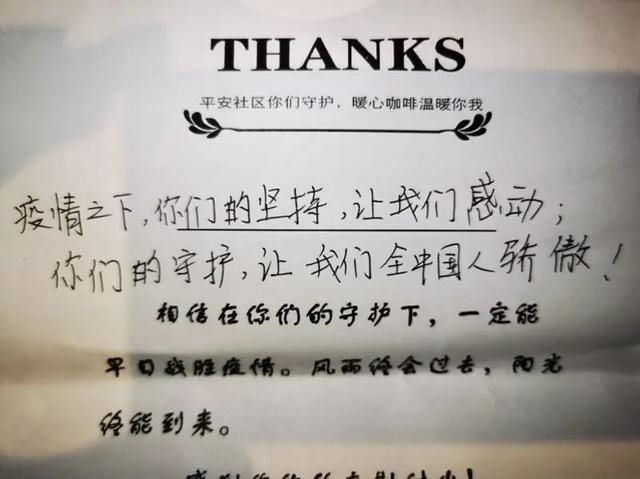 THANKS
平安社区你们守护，暖心咖啡温暖你我
疫情之下，你们的坚持，让我们感动；
你们的守护，让我们全中国人骄傲！
相信在你们的守护下，一定能
早日战胜疫情。风雨终会过去，阳光
终能到来。